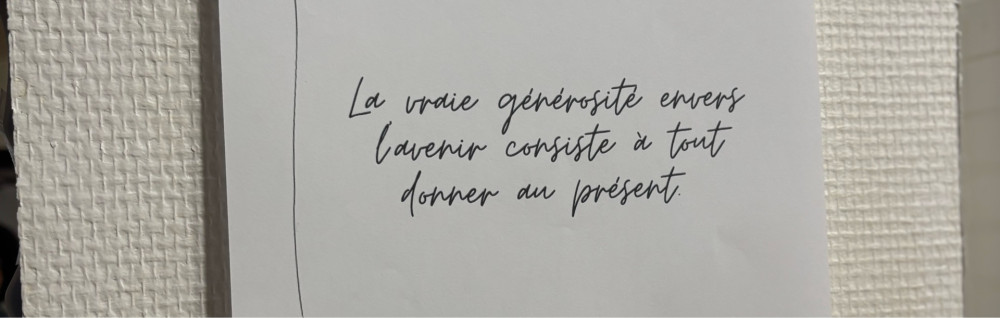 La vraie générosité envers
l'avenir consiste à tout
donner au présent.